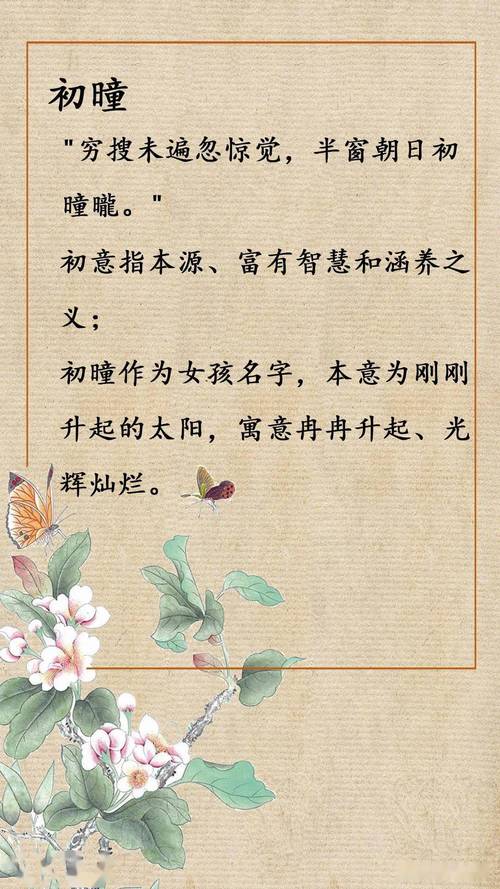 初曈
"穷搜未遍忽惊觉，半窗朝日初
曈曨。"
初意指本源、富有智慧和涵养之
义；
初曈作为女孩名字，本意为刚刚
升起的太阳，寓意冉冉升起、光
辉灿烂。